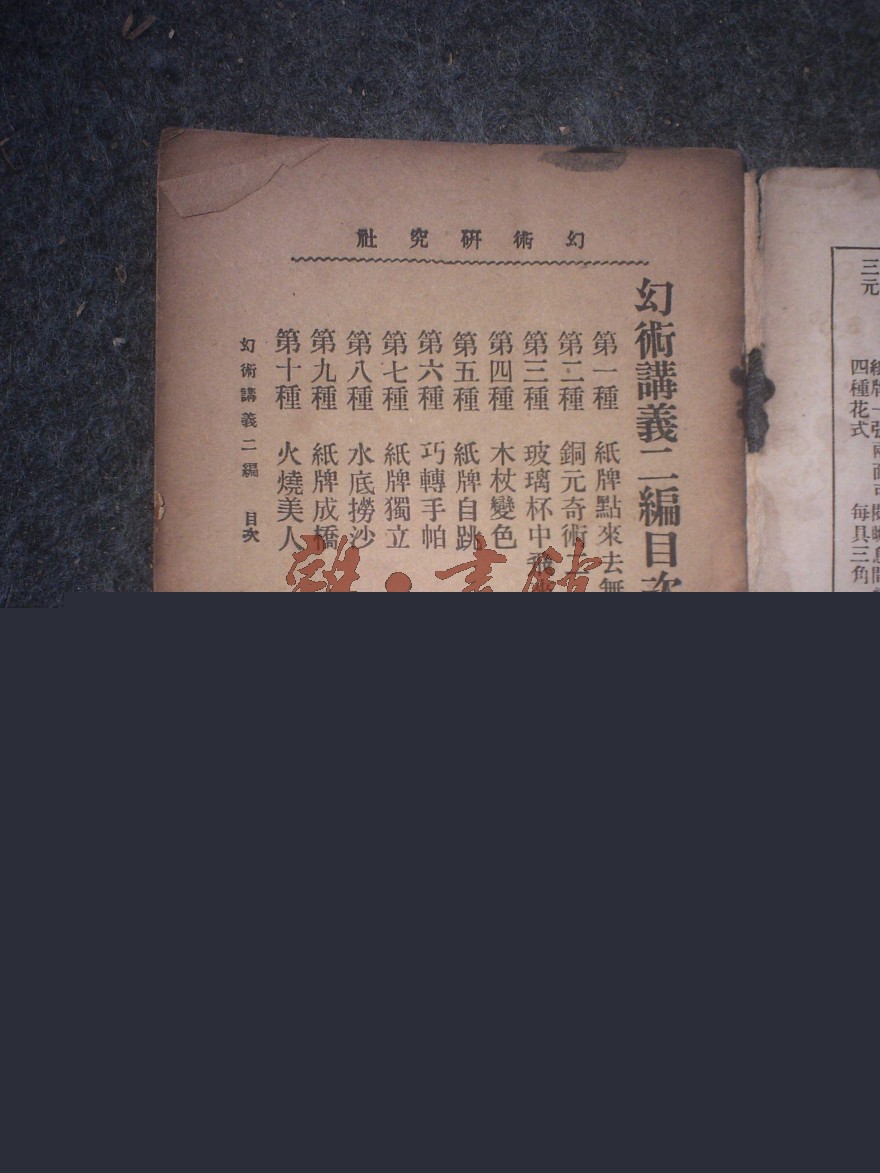 幻術研究社
幻術講義二編目次
第一種 紙牌點來去無
第二種 銅元奇術
第三種 玻璃杯中
第四種 木杖變色
第五種 紙牌自跳
第六種 巧轉手帕
第七種 紙牌獨立
第八種 水底撈沙
第九種 紙牌成橋
第十種 火燒美人
幻術講義二編 目次
三元
四種花式 每具三角